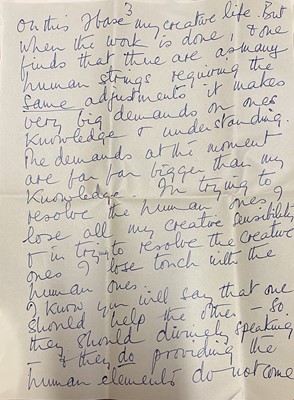 3
On this I base my creative life. But
when the work is done, & one
finds that there are as many
human strings requiring the
same adjustments it makes
very big demands on ones
knowledge & understanding.
The demands at the moment
are far far bigger than my
knowledge. In trying to
resolve the human ones I
lose all my creative sensibility
& in trying to resolve the creative
ones I lose touch with the
human ones.
I know you will say that one
should help the other – so
they should divinely speaking
– & they do providing the
human elements do not come